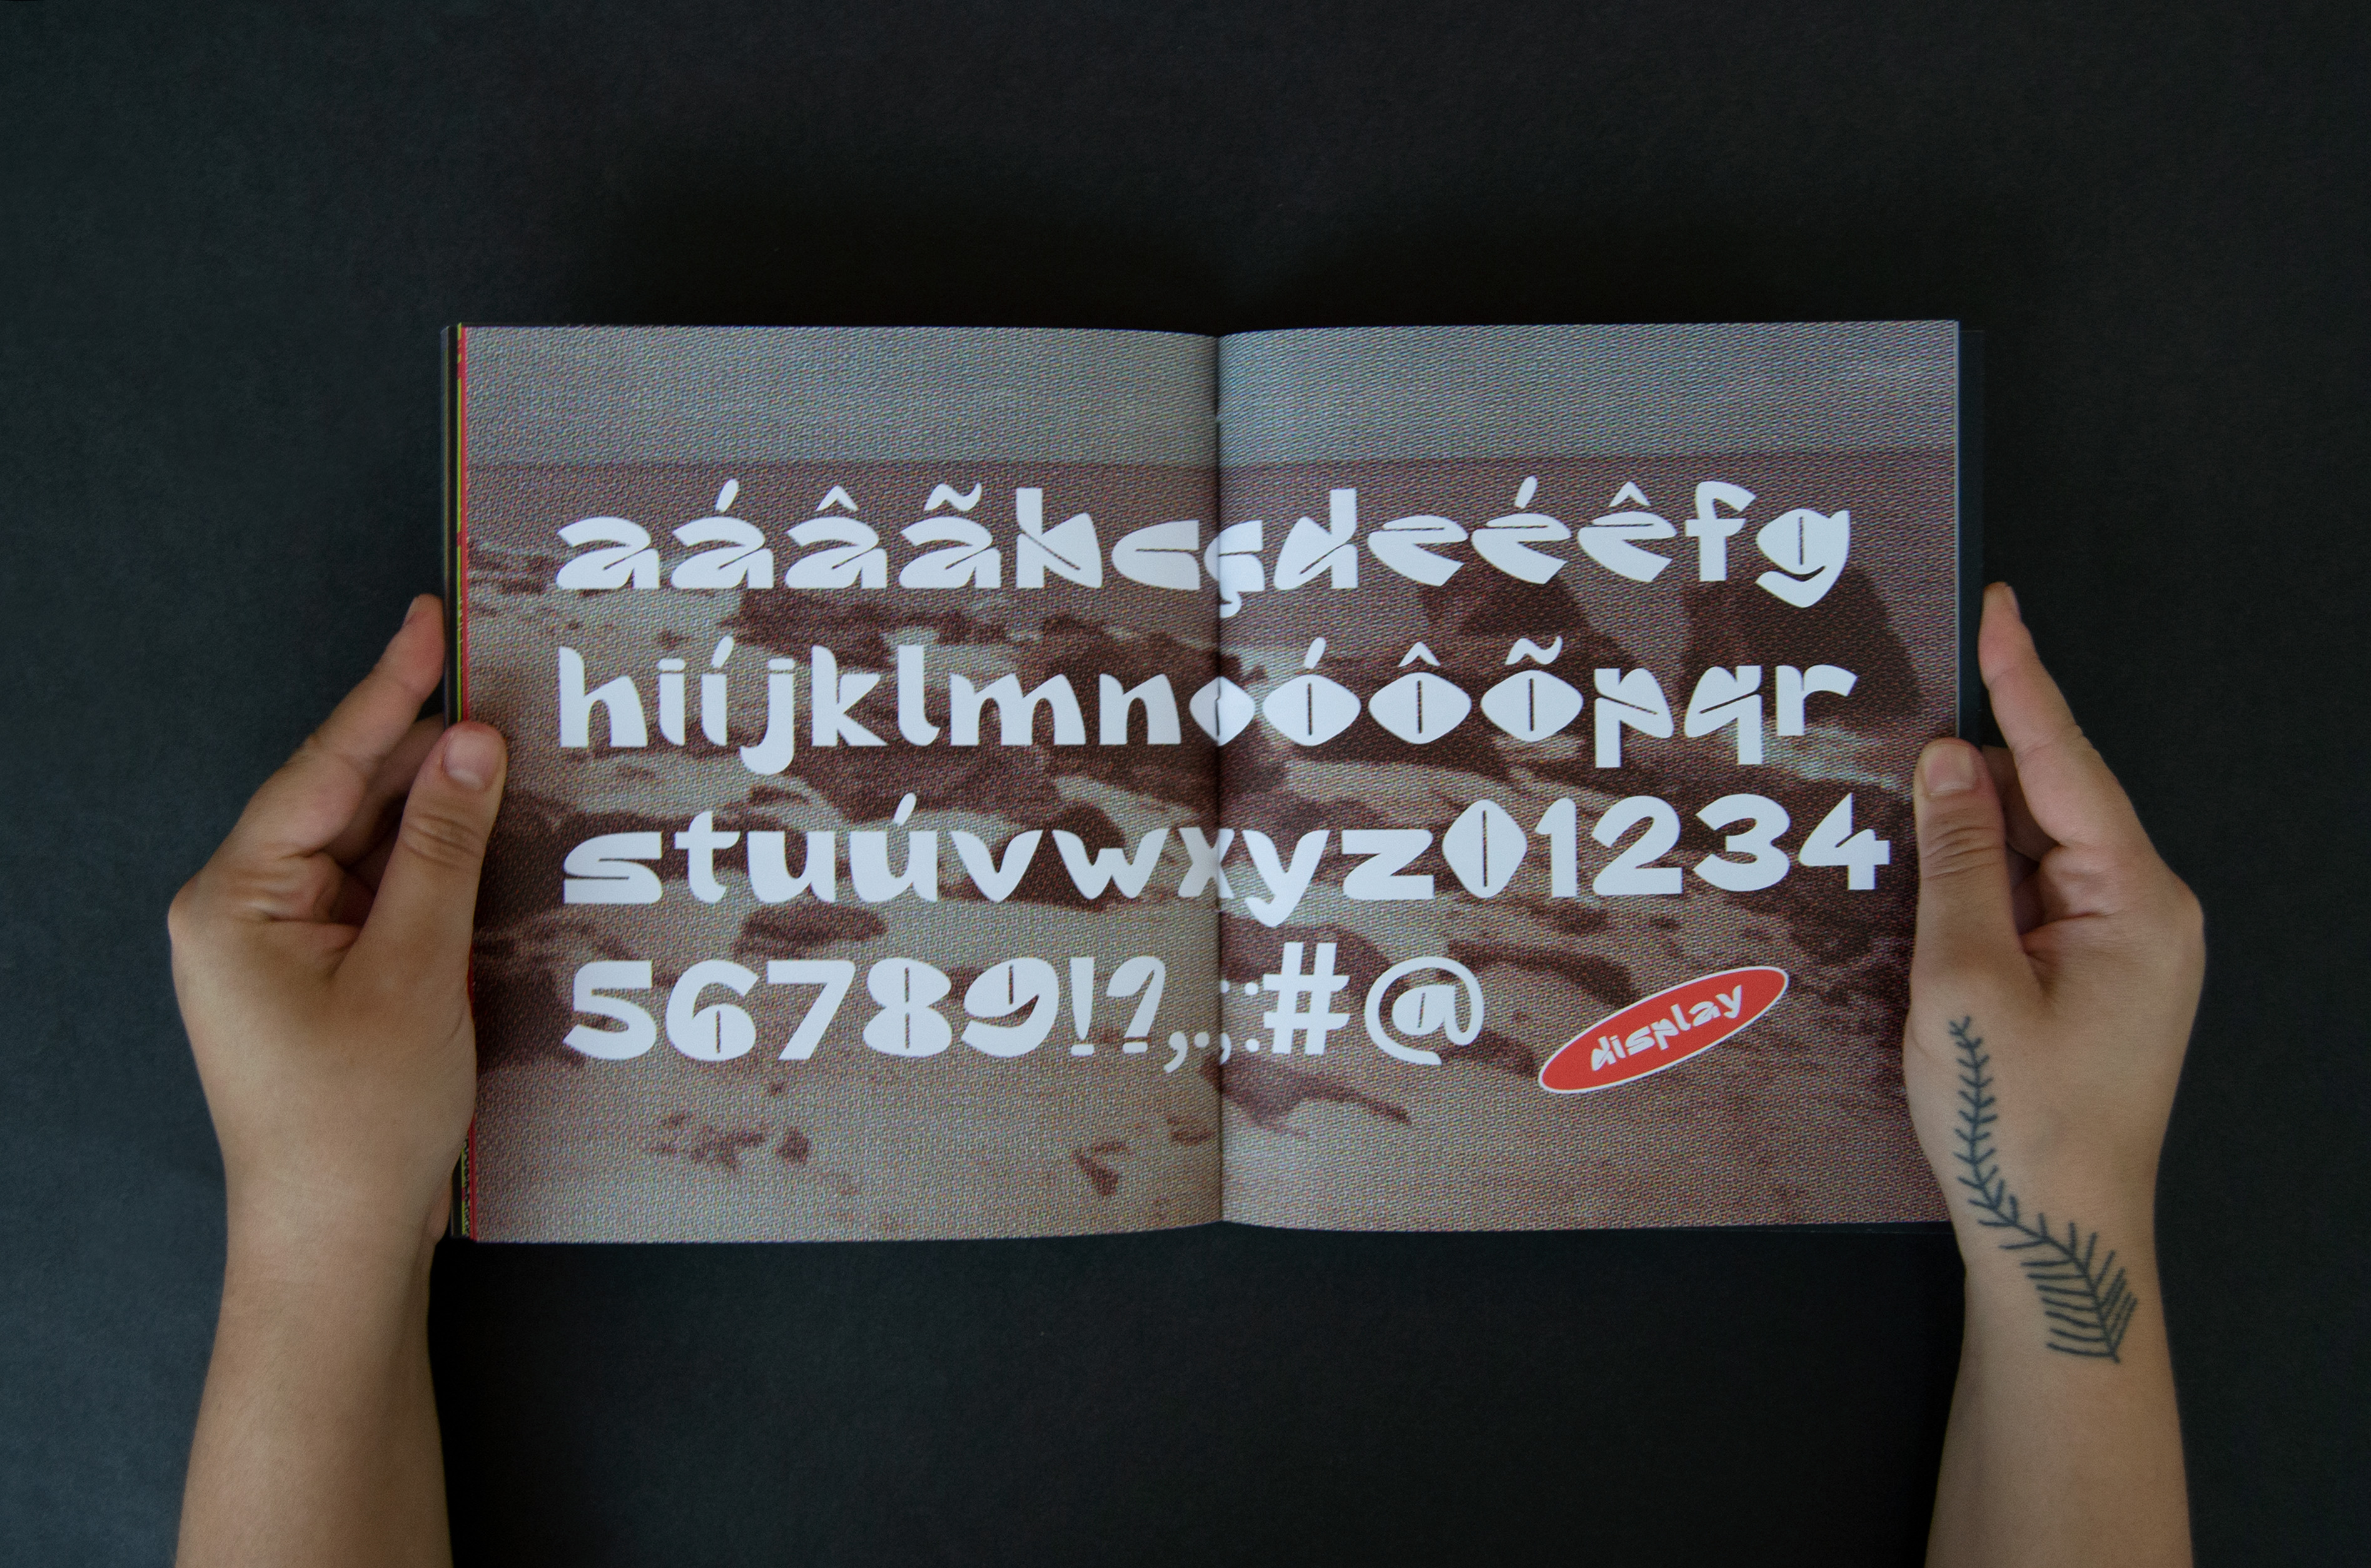 aáâãbcçdeéêfg
hiíjklmnoóôõpqr
stuúvwxyz01234
56789!?,.;:#@
display